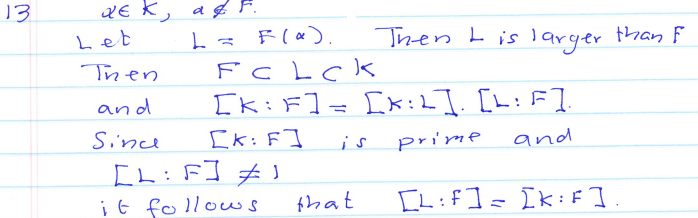 13 α∈ K, α ∉ F.
Let L = F(α). Then L is larger than F
Then F ⊂ L ⊂ K
and [K:F] = [K:L].[L:F].
Since [K:F] is prime and
[L:F] ≠ 1
it follows that [L:F] = [K:F].